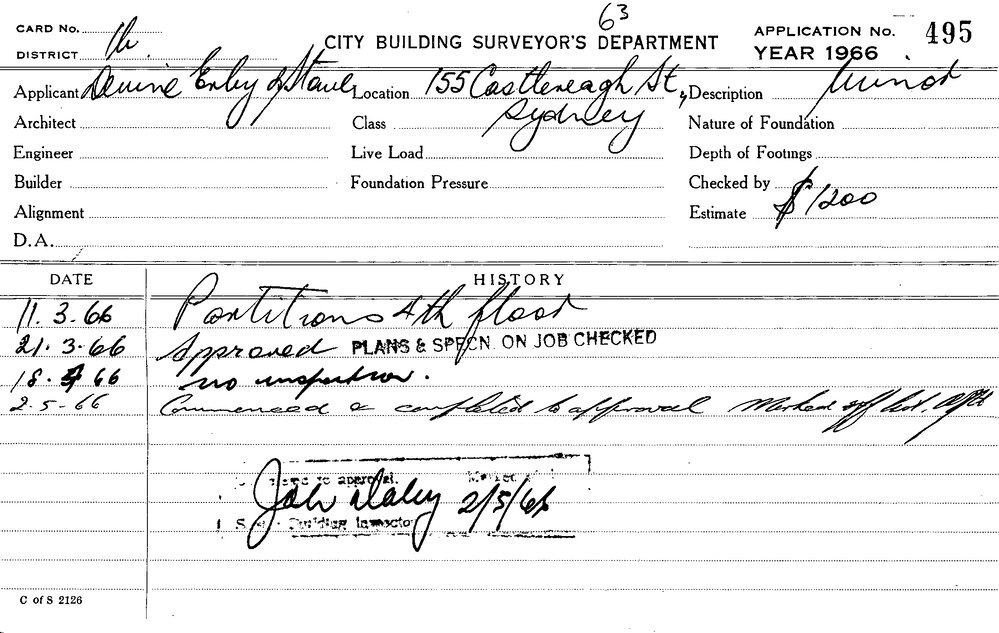 63
CARD No. APPLICATION No. 495
DISTRICT CITY BUILDING SURVEYOR'S DEPARTMENT YEAR 1966
Applicant Devine Erby & Location 155 Castlereagh St, Description Minor
Sydney
Architect Class Nature of Foundation
Engineer Live Load Depth of Footings
Builder Foundation Pressure Checked by
Alignment Estimate $1200
D.A.
DATE HISTORY
11.3.66 Partitions 4th floor
21.3.66 Approved PLANS & SPECN. ON JOB CHECKED
18.4 66 no inspection.
2-5-66 Commenced & completed to approval Marked off
to approval.
John Daley 2/5/66
Building Inspector
C of S 2126